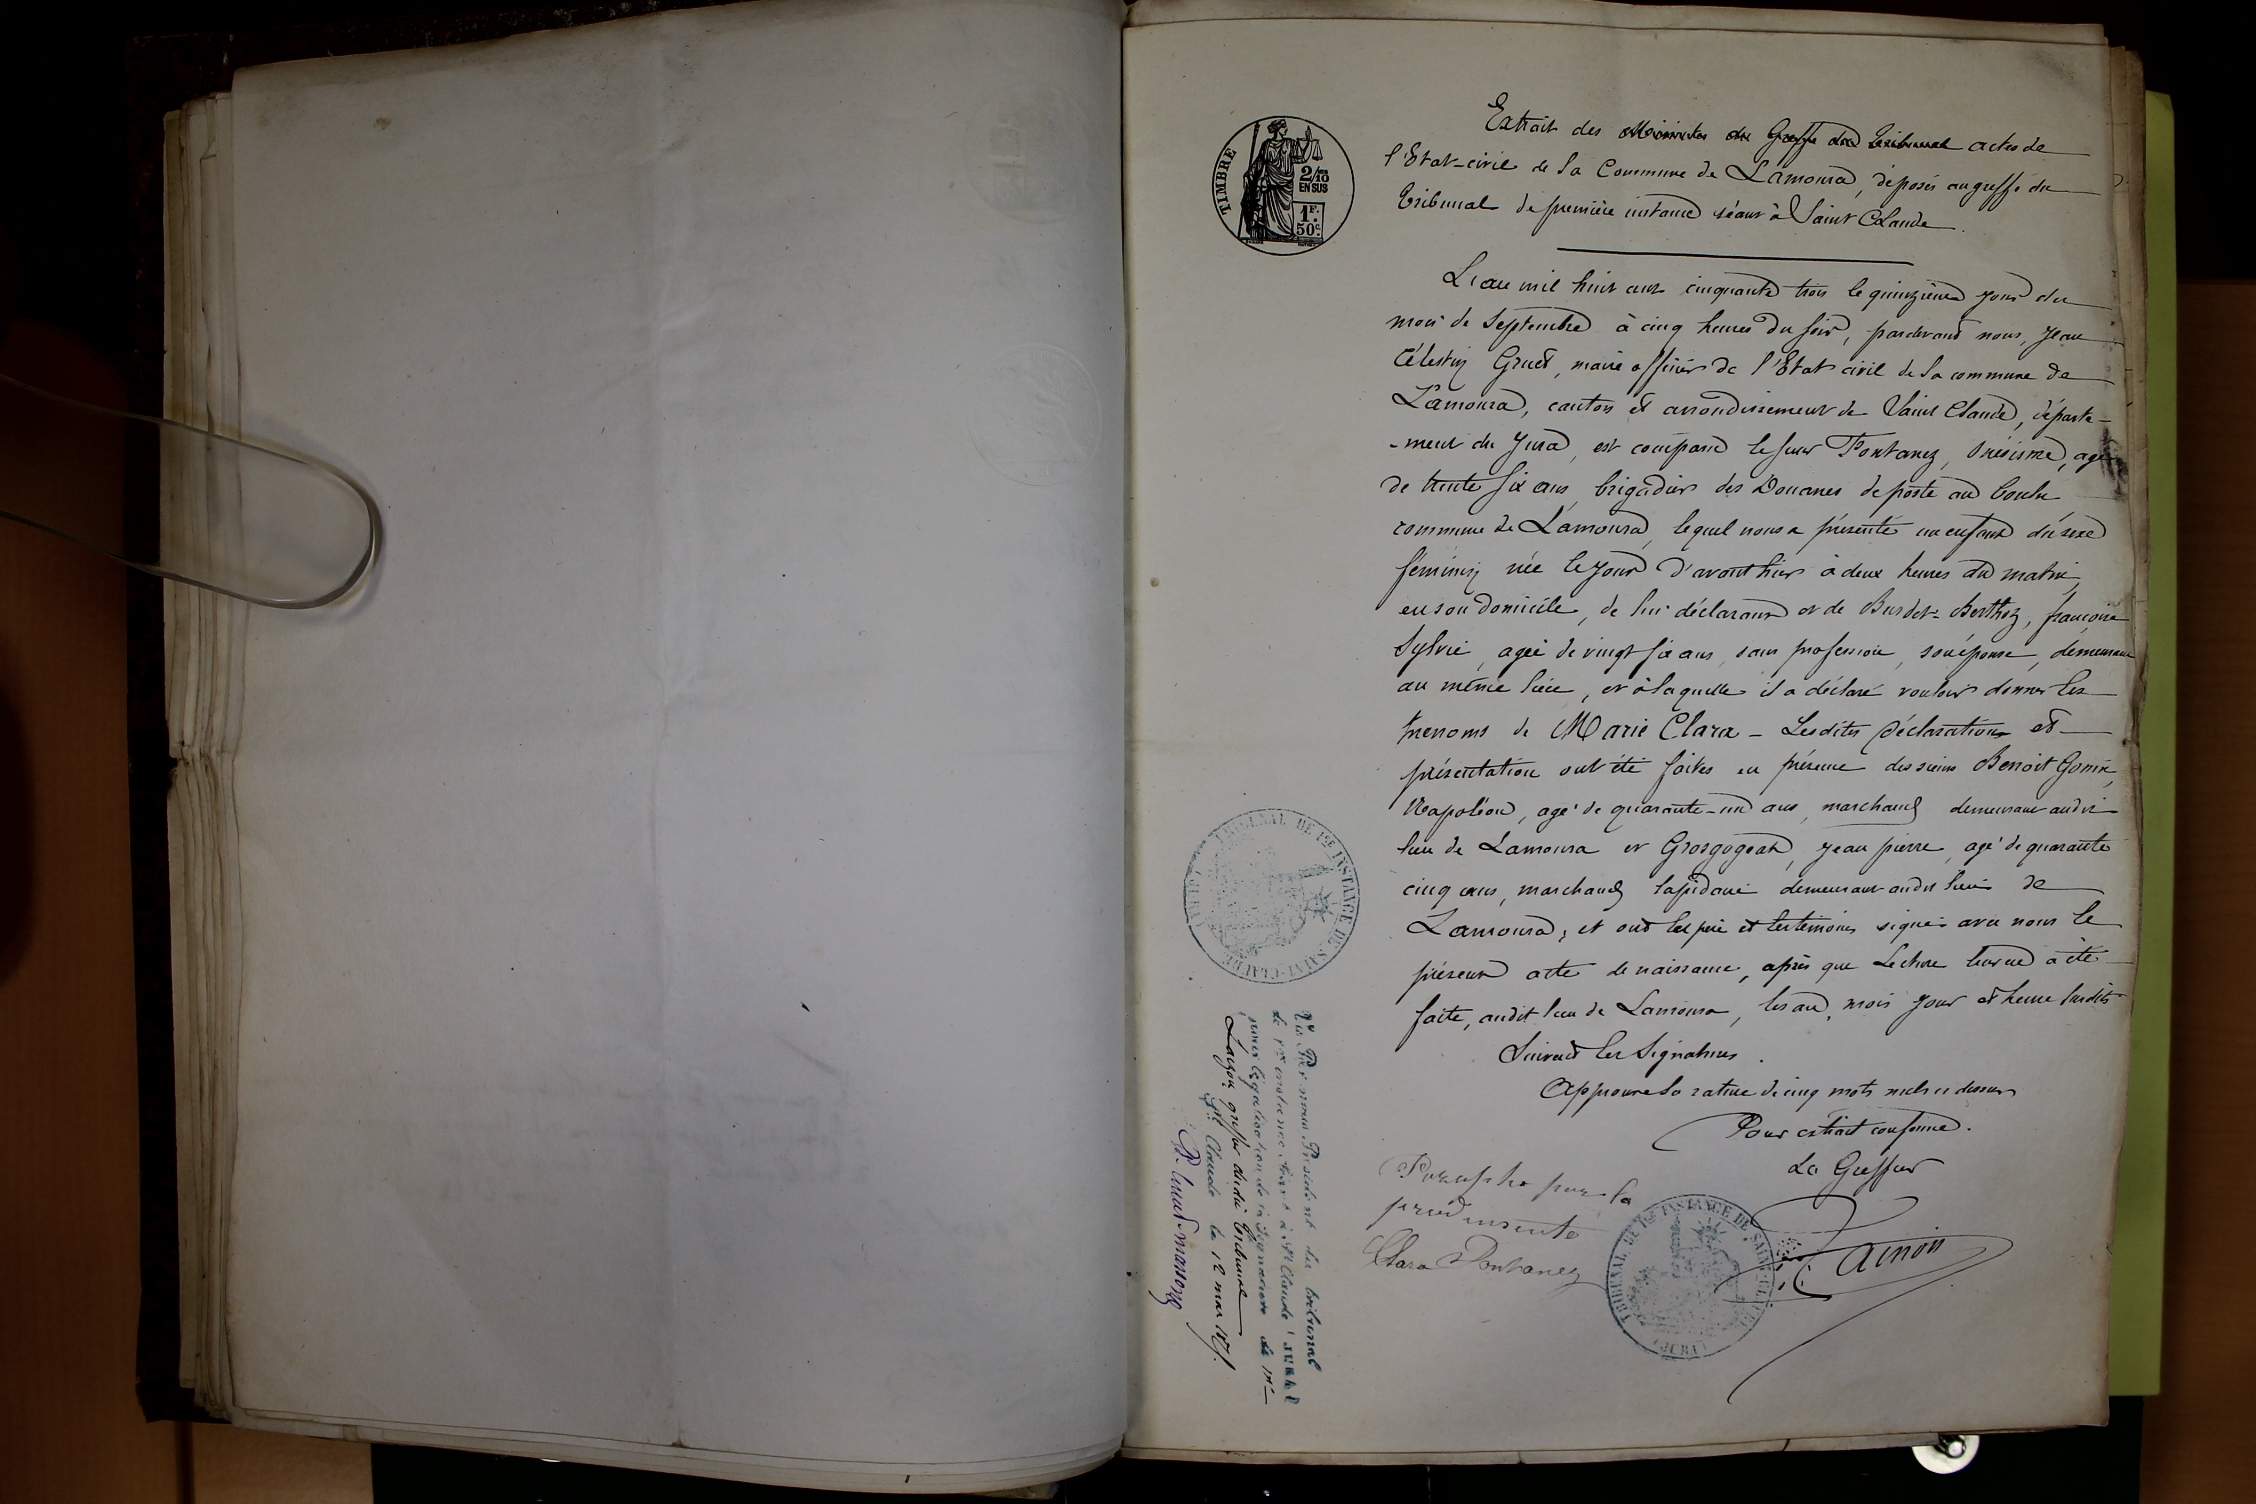 TIMBRE
2/10 EN SUS
1F. 50c.
Extrait des Minutes du Greffe du Tribunal actes de
l'Etat-civil de la Commune de Lamoura, déposés au greffe du
Tribunal de première instance séant à Saint Claude.
L'an mil huit cent cinquante trois le quinzième jour du
mois de Septembre à cinq heures du soir, pardevant nous, Jean
Célestin Gruet, maire officier de l'Etat civil de la commune de
Lamoura, canton et arrondissement de Saint Claude, départe-
-ment du Jura, est comparu le sieur Pontanez, Onésisme, agé
de trente six ans brigadier des Douanes de poste au
commune de Lamoura, lequel nous a présenté un enfant du sexe
féminin née le jour d'avant hier à deux heures du matin,
en son domicile, de lui déclarant et de Burdet-Berthoz, françoise
Sylvie, agée de vingt six ans, sans profession, son épouse, demeurant
au même lieu, et à laquelle il a déclaré vouloir donner les
prenoms de Marie Clara - Lesdites déclaration et
présentation ont été faites en présence des sieurs Benoit Gonin,
Napoléon, agé de quarante-un ans, marchand demeurant audit
lieu de Lamoura et Grosgogeat, Jean pierre, agé de quarante
cinq ans, marchand lapidaire demeurant audit lieu de
Lamoura, et ont les père et les témoins signé avec nous le
présent acte de naissance, après que lecture leur en a été
faite, audit lieu de Lamoura, les an, mois jour et heure susdits
Suivent les Signatures.
Approuvé la rature de cinq mots nuls ci dessus
Pour extrait conforme.
Le Greffier
Paraphe par la
Clara Pontanez
TRIBUNAL DE 1ère INSTANCE DE SAINT-CLAUDE (JURA)
TRIBUNAL DE 1ère INSTANCE DE SAINT-CLAUDE (JURA)
Vu Par nous Président du tribunal
de 1ère instance séant à St Claude (Jura)
pour légalisation de la signature de Mr
greffier dudit Tribunal
St Claude le 12 mai